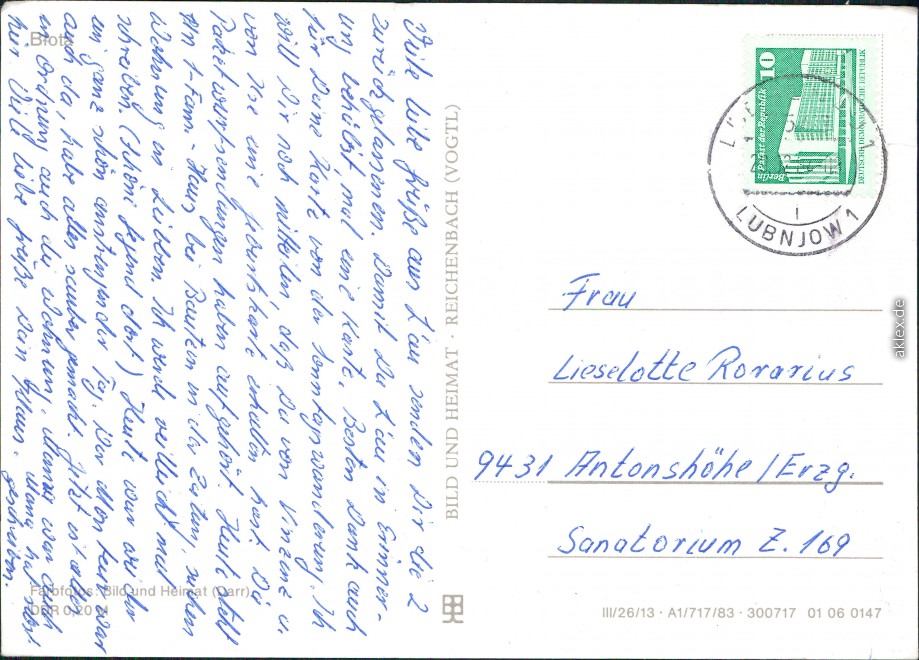 Błota
Viele liebe Grüße aus Lau senden Dir die 2
zurückgelassenen. Damit Du Lau in Erinner-
ung behälst mal eine Karte. Besten Dank auch
für Deine Karte von der Sonntagswanderung. Ich
will Dir noch mitteilen daß Du von Vinzenz u.
von Ike eine Karte erhalten hast. Die
Paketwarnsendungen haben aufgehört. Heute steht
1-Fam.-Haus bei Bautzen in der Zeitung, neben
Wohnung in Lieben. Ich werde vielleicht mal
schreiben. (Schöne Gegend dort) Heute war wieder
ein ganz schön anstrengender Tag. Der Monteur war
auch da habe alles sauber gemacht. Jetzt ist alles
in Ordnung auch die Wohnung. war auch
hier Viele liebe Grüße Dein Klaus. Mama hat
geschrieben.
Farbfotos: Bild und Heimat (Darr)
DDR 0,20 M
BILD UND HEIMAT · REICHENBACH (VOGTL)
10
Palast der Republik
Berlin
DEUTSCHE DEMOKRATISCHE REPUBLIK
1
LUBNJOW 1
Frau
Lieselotte Rorarius
9431 Antonshöhe/Erzg.
Sanatorium Z. 169
III/26/13 · A1/717/83 · 300717 01 06 0147
aklex.de